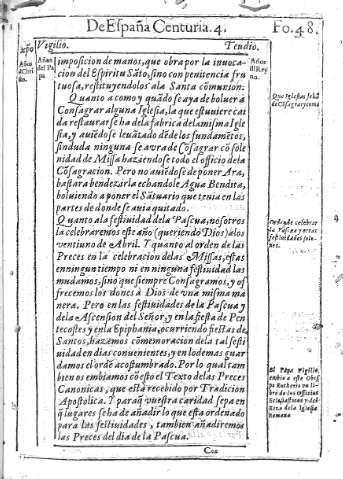 De España Centuria. 4. Fo. 48.
Vegilio. Teudio.
Años del Pa pa
imposicion de manos, que obra por la inuoca-
cion del Espiritu Sãto, sino con penitencia fru
tuosa, restituyendolos ala Santa comunion:
Quanto a como y quãdo se aya de boluer à
Consagrar alguna Iglesia, la que estuuiere caí
da restaurarse ha de la fabrica de la misma Igle
sia, y auiẽdose leuãtado dẽde los fundamẽtos,
sin duda ninguna se aura de Cõsagrar cõ sole
nidad de Missa haziendose todo el officio de la
Cõsagracion. Pero no auiẽdose de poner Ara,
bastara bendezirla echandole Agua Bendita,
boluiendo a poner el Sãtuario que tenia en las
partes de donde se auia quitado.
Quanto ala festiuidad dela Pascua, nosotros
la celebraremos este año (queriendo Dios) alos
ventiuno de Abril. Y quanto al orden de las
Preces en la celebracion delas Missas, estas
en ningun tiempo ni en ninguna festiuidad las
mudamos, sino que siempre Consagramos, y of
frecemos los dones à Dios de vna misma ma
nera. Pero en las festiuidades dela Pascua y
dela Ascension del Señor, y en la fiesta de Pen
tecostes y en la Epiphania, ocurriendo fiestas de
Santos, hazemos cõmemoracion dela tal festi
uidad en dias conuenientes, y en lo demas guar
damos el ordẽ acostumbrado. Por lo qual tam
bien os embiamos cõ esto el Texto delas Preces
Canonicas, que està recebido por Tradicion
Apostolica. Y paraq̃ vuestra caridad sepa en
q̃ lugares se ha de añadir lo que esta ordenado
para las festiuidades, tambien añadiremos
las Preces del dia de la Pascua.
Con
Que Iglesias se hã
de Cõsagrar y como
cuãdo se celebrar
la Pascua y otras
festiuidades sole-
nes.
El Papa Vigilio
embio a este Obis
po Eutherio un li
bro de los Officios
Eclesiasticos y de
la Iglesia
Romana